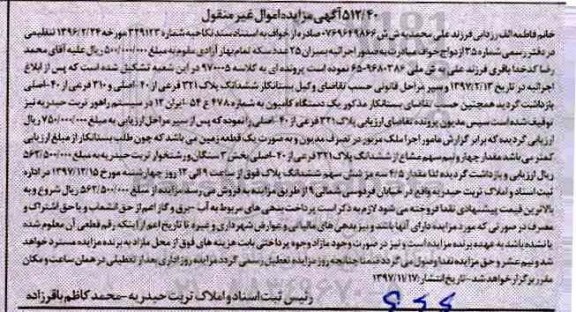 ۵۱۲/۴۰ آگهی مزایده اموال غیر منقول
خانم فاطمه الف رزدانی فرزند علی محمد به ش ش ۰۷۶۹۶۴۹۸۶۶ صادره از خواف به استناد سند نکاحیه شماره ۳۴۹۱۲۳ مورخه ۱۳۹۶/۲/۲۴ تنظیمی
در دفتر رسمی شماره ۳۵ ازدواج خواف مبادرت به صدور اجرائیه بمیزان ۲۵ عدد سکه تمام بهار آزادی علوم به مبلغ ۵۰۰/۰۰۰/۰۰۰ ریال علیه آقای محمد
رضا کدخدا باقری فرزند علی به ش ملی ۹۶۸۰۳۸۶-۰۶۵ نموده است پرونده ای به کلاسه ۹۷۰۰۰۵ در این شعبه تشکیل شده است که پس از ابلاغ
اجرائیه در تاریخ ۱۳۹۷/۲/۱۳ و سیر مراحل قانونی حسب تقاضای وکیل بستانکار ششدانگ پلاک ۳۲۱ فرعی از ۴۰-اصلی و ۳۱۰ فرعی از ۴۰-اصلی
بازداشت گردید همچنین حسب تقاضای بستانکار مذکور یک دستگاه کامیون به شماره ۴۷۸ ع ۵۴-ایران ۱۲ در سیستم راهور تربت حیدریه نیز
توقیف شده است سپس مدیون پرونده تقاضای ارزیابی پلاک ۳۲۱ فرعی از ۴۰-اصلی را نموده که پس از سیر مراحل ارزیابی به مبلغ ۷۵۰/۰۰۰/۰۰۰ ریال
ارزیابی گردیده که برابر گزارش مامور اجرا ملک مزبور در تصرف مدیون و به صورت یک قطعه زمین می باشد که چون طلب بستانکار از مبلغ ارزیابی
کمتر می باشد مقدار چهار و نیم سهم مشاع از ششدانگ پلاک ۳۲۱ فرعی از ۴۰-اصلی بخش ۳ سنگان و رشتخوار تربت حیدریه به مبلغ ۵۶۲/۵۰۰/۰۰۰
ریال ارزیابی و بازداشت گردیده لذا مقدار ۴/۵ سه مزشش سهم ششدانگ پلاک فوق از ساعت ۹ الی ۱۲ روز چهارشنبه مورخ ۱۳۹۷/۱۲/۱۵ در اداره
ثبت اسناد و املاک تربت حیدریه واقع در خیابان فردوسی شمالی ۹ از طریق مزایده به فروش می رسد مزایده از مبلغ ۵۶۲/۵۰۰/۰۰۰ ریال شروع و به
بالاترین قیمت پیشنهادی نقدا فروخته می شود لازم به ذکر است پرداخت بدهی های مربوط به آب-برق و گاز اعم از حق انشعاب و یا حق اشتراک و
مصرف در صورتی که مورد مزایده دارای آنها باشد و نیز بدهی های مالیاتی و عوارض شهرداری و غیره تا تاریخ اعم از اینکه رقم قطعی آن معلوم شده
یا نشده باشد به عهده برنده مزایده است و نیز در صورت وجود مازاد وجوه پرداختی بابت هزینه های فوق از محل مازاد به برنده مزایده مسترد خواهد
شد و نیم عشر و حق مزایده نقدا وصول می گردد ضمنا چنانچه روز مزایده تعطیل رسمی گردد مزایده روز اداری بعد از تعطیلی در همان ساعت و مکان
مقرر برگزار خواهد شد-تاریخ انتشار: ۱۳۹۷/۱۱/۱۷
رئیس ثبت اسناد و املاک تربت حیدریه-محمد کاظم باقرزاده